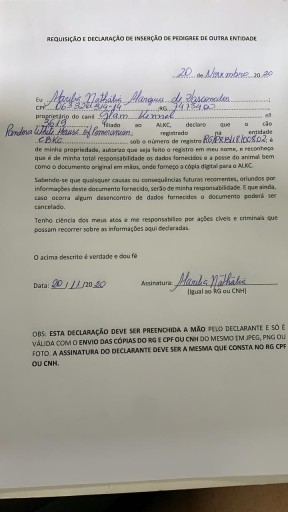 REQUISIÇÃO E DECLARAÇÃO DE INSERÇÃO DE PEDIGREE DE OUTRA ENTIDADE
20 de Novembro 2020
Eu Marília Nathalia Marques de Vasconcelos
CPF RG
proprietário do canil Glam Kennel nº
3619 filiado ao ALKC, declaro que o cão
Pandora White House of Pomeranian, registrado na entidade
CBKC sob o número de registro é
de minha propriedade, autorizo que seja feito o registro em meu nome, e reconheço
que é de minha total responsabilidade os dados fornecidos e a posse do animal bem
como o documento original em mãos, onde forneço a cópia digital para o ALKC.
Sabendo-se que quaisquer causas ou consequências futuras recorrentes, oriundos por
informações deste documento fornecido, serão de minha responsabilidade. E que ainda,
caso ocorra algum desencontro de dados fornecidos o documento poderá ser
cancelado.
Tenho ciência dos meus atos e me responsabilizo por ações cíveis e criminais que
possam recorrer sobre as informações aqui declaradas.
O acima descrito é verdade e dou fé
Data: 20/11/2020 Assinatura: Marília Nathalia
(Igual ao RG ou CNH)
OBS: ESTA DECLARAÇÃO DEVE SER PREENCHIDA A MÃO PELO DECLARANTE E SÓ É
VÁLIDA COM O ENVIO DAS CÓPIAS DO RG E CPF OU CNH DO MESMO EM JPEG, PNG OU
FOTO. A ASSINATURA DO DECLARANTE DEVE SER A MESMA QUE CONSTA NO RG CPF
OU CNH.